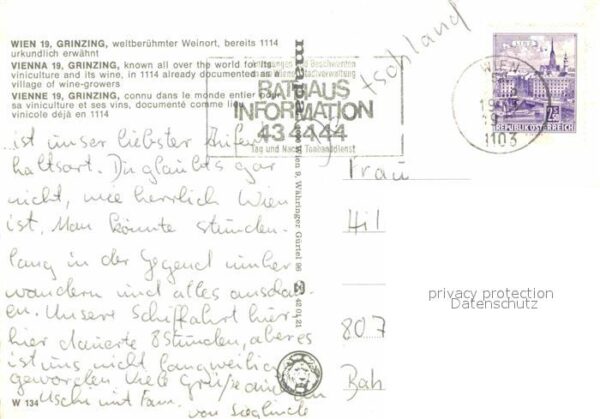 WIEN 19, GRINZING, weltberühmter Weinort, bereits 1114
urkundlich erwähnt
VIENNA 19, GRINZING, known all over the world for its
viniculture and its wine, in 1114 already documented as a
village of wine-growers
VIENNE 19, GRINZING, connu dans le monde entier pour
sa viniculture et ses vins, documenté comme lieu
vinicole déjà en 1114
...ist unser liebster Aufent
haltsort. Du glaubst gar
nicht, wie herrlich Wien
ist. Man könnte stunden-
lang in der Gegend umher
wandern und alles anschau-
en. Unsere Schiffahrt hier-
hier dauerte 8 Stunden, aber es
ist uns nicht langweilig
geworden. Viele Grüße an
Uschi und Fam. von Sieglinde
W 134
mapa
Wien 9, Währinger Gürtel 96
42 01 21
RATHAUS
INFORMATION
43 44 44
Tag und Nacht Tonbanddienst
tschland
LINZ
2S
REPUBLIK ÖSTERREICH
WIEN
1103
Frau
Hil
807
Bah
privacy protection
Datenschutz